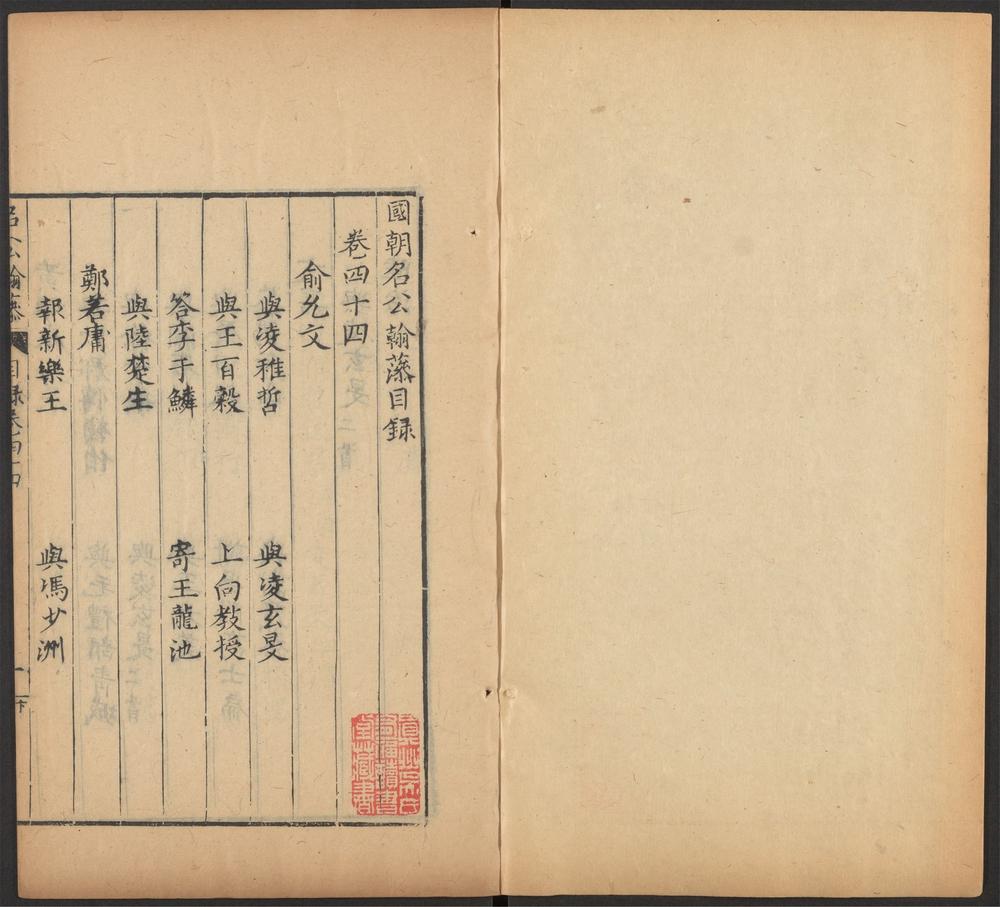 國朝名公翰藻目録
卷四十四
俞允文
與凌稚哲
與凌玄旻
與王百穀
上向教授
答李于鱗
寄王龍池
與陸楚生
鄭若庸
報新樂王
與馮少洲
名公翰藻
目録卷四十四
一